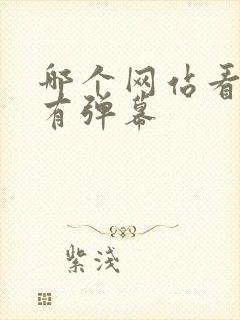 哪个网站看
有弹幕
紫浅